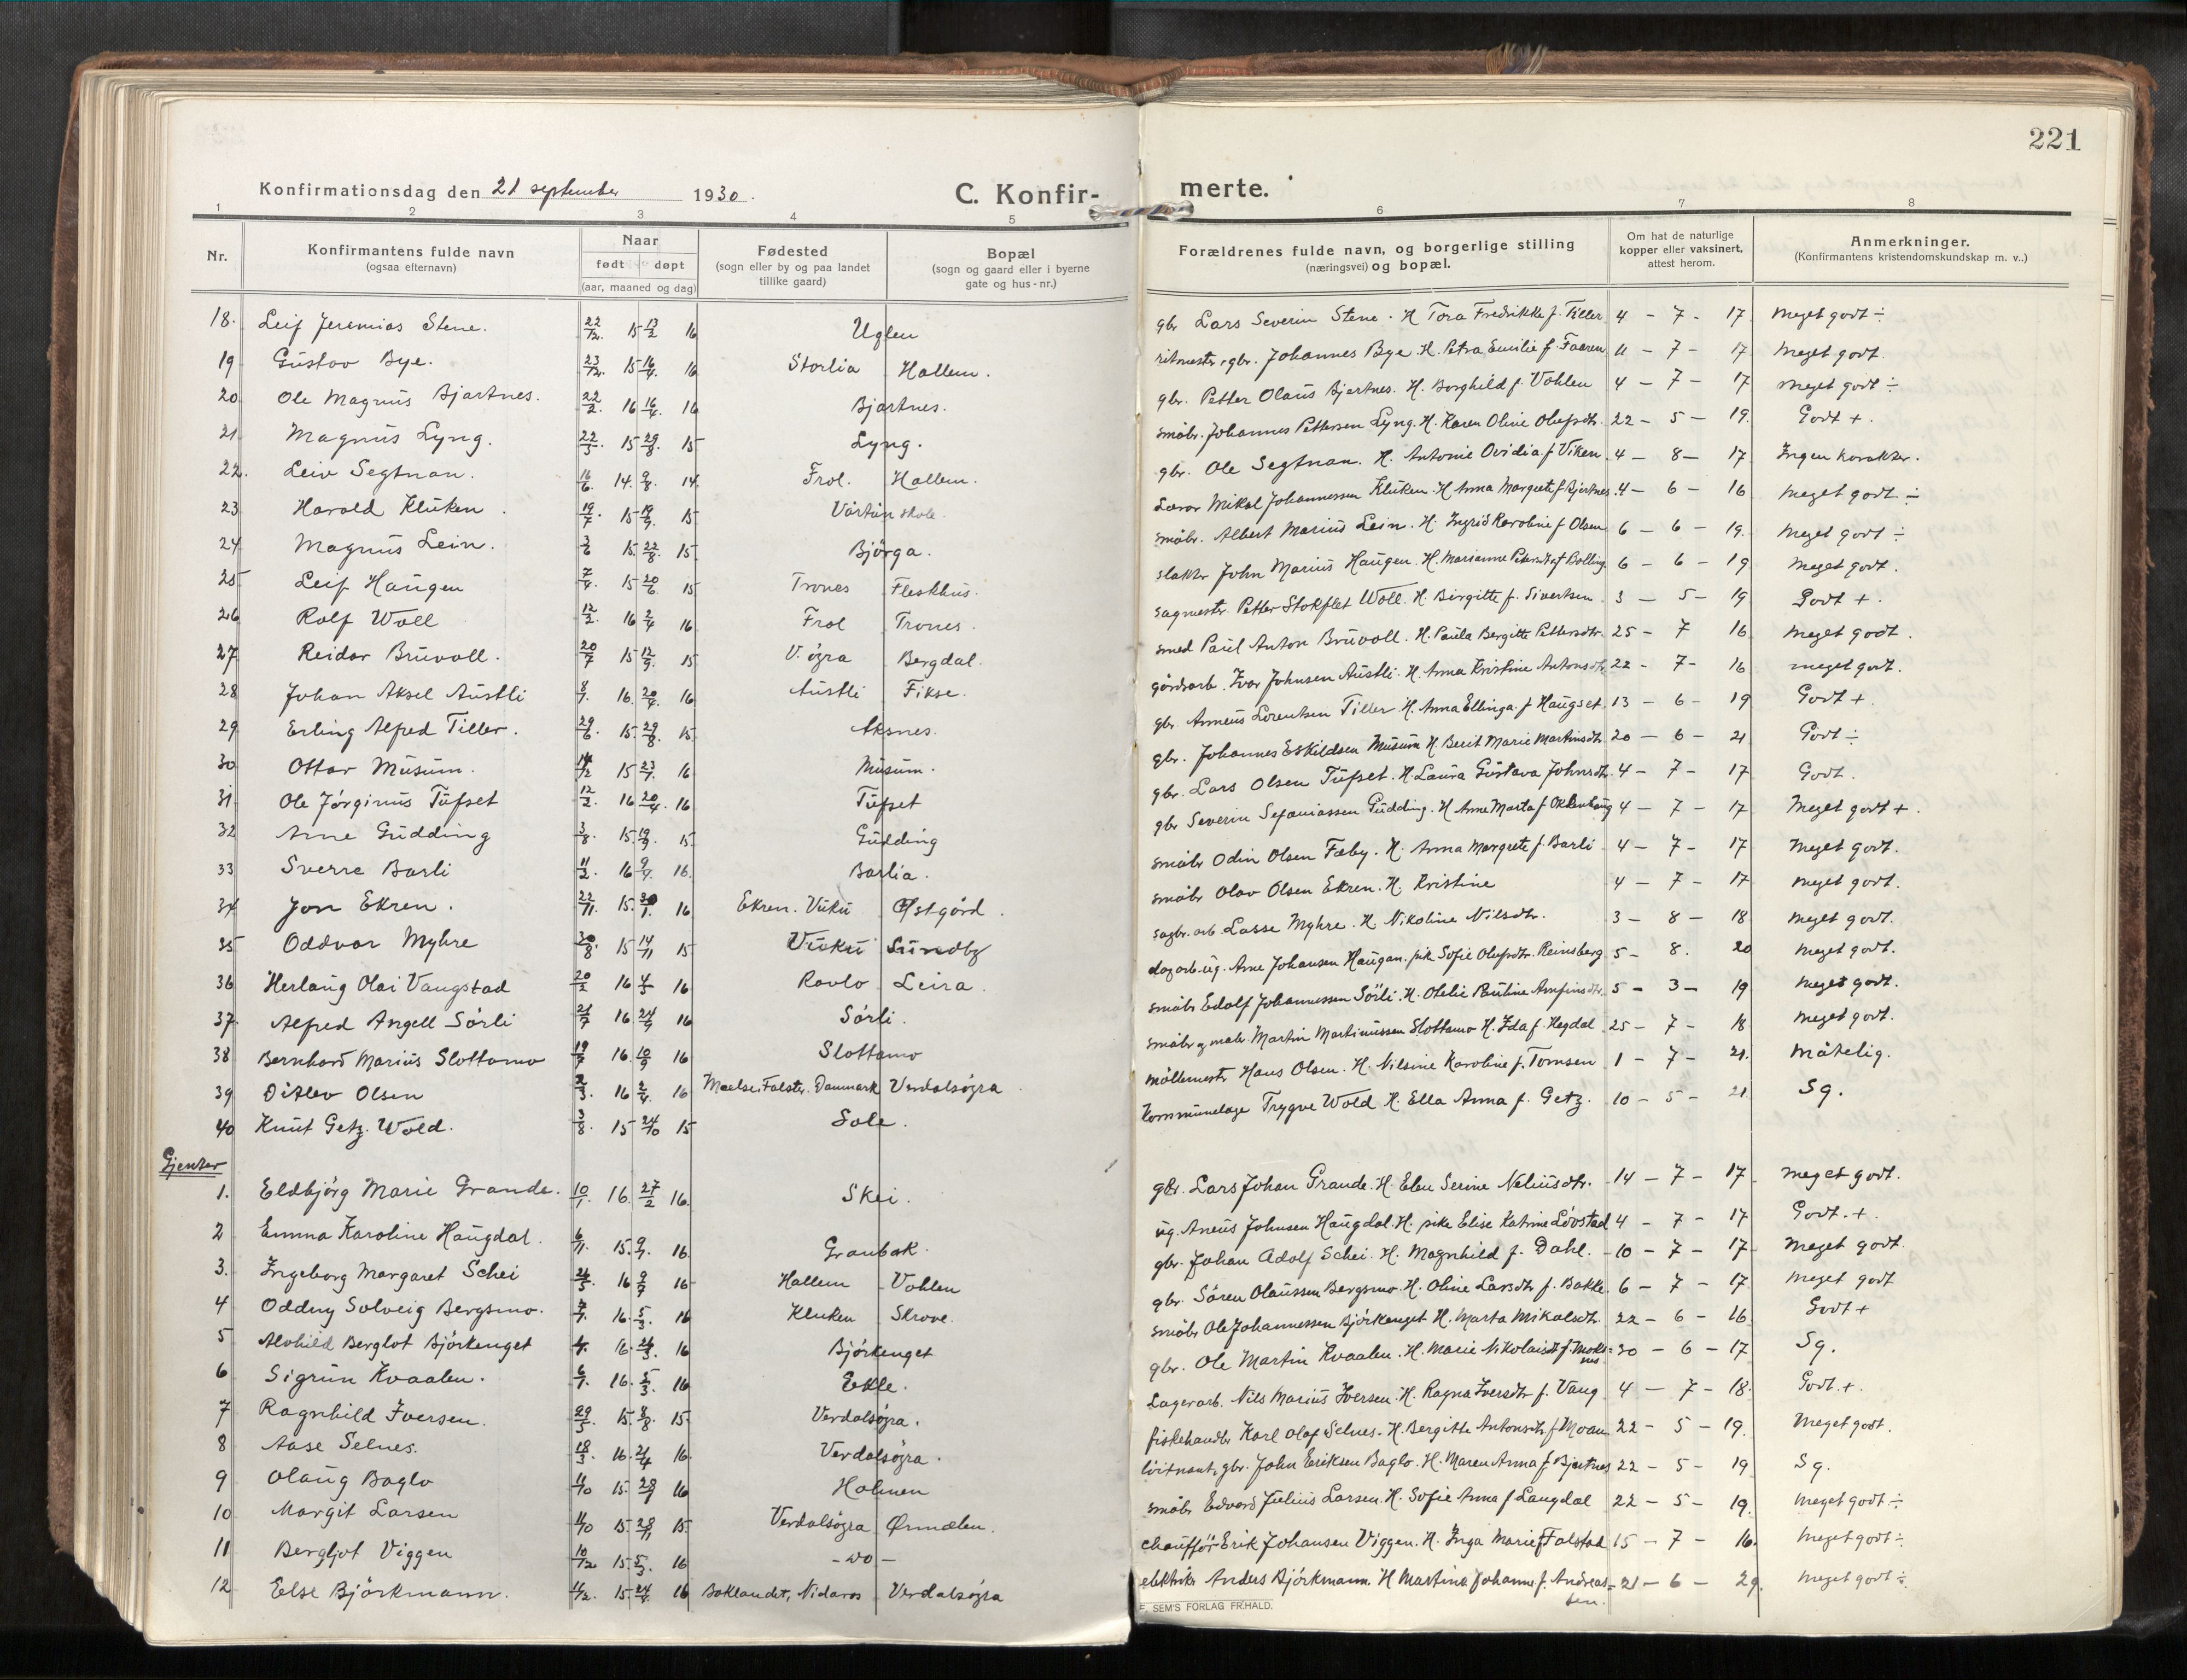 221
Konfirmationsdag den 21 september 1930.
C. Konfir-merte.
1 2 3 4 5 6 7 8
Nr.
Konfirmantens fulde navn
(ogsaa efternavn)
Naar
født døpt
(aar, maaned og dag)
Fødested
(sogn eller by og paa landet
tillike gaard)
Bopæl
(sogn og gaard eller i byerne
gate og hus-nr.)
Forældrenes fulde navn, og borgerlige stilling
(næringsvei) og bopæl.
Om hat de naturlige
kopper eller vaksinert,
attest herom.
Anmerkninger.
(Konfirmantens kristendomskundskap m. v..)
18. Leif Jeremias Stene. 22/12. 15 13/2 16 Uglen gbr Lars Severin Stene. H Tora Fredrikke f. Tiller 4 - 7 - 17 Meget godt ÷
19 Gustav Bye. 23/12. 15 16/4. 16 Storlia Hallem. ritmester, gbr. Johannes Bye. H. Petra Emilie f. Faaren 11 - 7 - 17 Meget godt.
20 Ole Magnus Bjartnes. 22/2. 16 16/4. 16 Bjartnes. gbr. Petter Olaus Bjartnes. H. Borghild f. Vohlen 4 - 7 - 17 Meget godt ÷
21 Magnus Lyng. 22/3 15 29/8. 15 Lyng. småbr. Johannes Pettersen Lyng. H. Karen Oline Olufsdtr. 22 - 5 - 19. Godt +.
22. Leiv Segtnan. 16/6. 14. 9/8. 14. Frol. Hallem. gbr. Ole Segtnan. H. Antonie Ovidia f Viken 4 - 8 - 17 Ingen karakter.
23 Harald Kluken. 19/7. 15 19/9. 15 Vårtun skole. Lærer Mikal Johannessen Kluken. H Anna Margrete f. Bjertnes. 4 - 6 - 16 Meget godt ÷
24 Magnus Lein. 3/6 15. 22/8. 15. Bjørga. småbr. Albert Marius Lein. H. Ingrid Karoline f Olsen 6 - 6 - 19. Meget godt ÷
25 Leif Haugen 7/4. 15 20/6. 15 Trones Fleskhus. slakter John Marius Haugen. H. Marianne Petersdtr f Bolling. 6 - 6 - 19 Meget godt.
26 Rolf Woll 12/2. 16 2/4 16 Frol Trones. sagmester Petter Stokflet Woll. H. Birgitte f. Sivertsen. 3 - 5 - 19 Godt +.
27 Reidar Bruvoll. 20/7 15 12/9. 15 V. øgra Bergdal. smed Paul Anton Bruvoll. H. Paula Bergitte Pettersdtr. 25 - 7 16 Meget godt.
28 Johan Aksel Austli 16. 20/4. 16 Austli Fikse. gårdsarb. Ivar Johnsen Austli. H. Anna Kristine Antonsdtr. 22 - 7 - 16 meget godt.
29 Erling Alfred Tiller. 29/6 15. 29/8. 15 Aksnes. gbr. Anneus Lorentsen Tiller. H. Anna Ellinga f Haugset. 13 - 6 - 19 Godt +.
30 Ottar Musum. 15 23/1. 16 Musum. gbr. Johannes Eskildsen Musum H. Berit Marie Martinsdtr. 20 - 6 - 21 Godt ÷
31 Ole Jørginus Tufset 12/2. 16 20/4. 16 Tufset gbr. Lars Olsen Tufset. H. Laura Gustava Johnsdtr. 4 - 7 - 17 Godt.
32 Arne Gudding 3/8. 15. 19/9. 15. Gudding gbr Severin Sefaniassen Gudding. H Anne Marta f. Okkenhaug 4 - 7 - 17 Meget godt +.
33 Sverre Barli 11/2. 16 9/4. 16. Barlia. småbr Odin Olsen Fæby. H. Anna Margrete f. Barli 4 - 7 - 17 Meget godt.
34 Jon Ekren. 22/11. 15. 30/1. 16 Ekren. Vuku Østgård. småbr Olav Olsen Ekren. H. Kristine 4 - 7 - 17 Meget godt.
35 Oddvar Myhre 30/8. 15 14/11 15 Vuku Sundby sagbr. arb. Lasse Myhre. H. Nikoline Nilsdtr. 3 - 8 - 18 Meget godt.
36 Herlaug Olai Vangstad 20/2 16 4/5 16 Ravlo Leira. dagarb. ug. Arne Johansen Haugan. pike Sofie Olufsdtr. Reinsberg 5 - 8. 20 Meget godt.
37. Alfred Angell Sørli 16 24/9 16 Sørli. småbr Edolf Johannessen Sørli. H. Otelie Pauline Arnfinsdtr. 5 - 3 - 19 Meget godt.
38 Bernhard Marius Slottamo 19/7 16. 10/9 16 Slottamo småbr og maler Martin Martinussen Slottamo H. Ida f. Hegdal 25 - 7 - 18 Meget godt.
39 Ditlev Olsen 2/3. 16 2/4. 16 Maelse. Falster. Danmark Verdalsøgra møllemestr Hans Olsen. H. Nilsine Karoline f. Tomsen 1 - 7 - 21. Måtelig.
40 Knut Getz Wold. 3/8. 15 24/10 15 Sole. kommunelæge Trygve Wold H. Ella Anna f. Getz. 10 - 5 - 21 Sg.
Gjenter
1. Eldbjørg Marie Grande. 10/1 16. 27/2 16. Skei. gbr. Lars Johan Grande. H. Elen Serine Neliusdtr. 14 - 7 - 17 Meget godt.
2 Emma Karoline Haugdal. 6/11. 15. 9/1. 16. Granbak. ug. Aneus Johnsen Haugdal. H. pike Elise Katrine Løvstad 4 - 7 - 17 Godt. +.
3. Ingeborg Margaret Schei 16 9/7 16 Hallem Vohlen gbr. Johan Adolf Schei. H. Magnhild f. Dahl. 10 - 7 - 17 Meget godt.
4 Oddny Solveig Bergsmo. 16. 5/3. 16 Kluken Skrove. gbr. Søren Olaussen Bergsmo. H. Oline Larsdtr f. Bakke. 6 - 7 - 17. Meget godt
5 Alvhild Berglot Bjørkenget 16. 26/3. 16 Bjørkenget småbr Ole Johannessen Bjørkenget H. Marta Mikalsdtr. 22 - 6 - 16 Godt +
6 Sigrun Kvaalen. 6/1. 16. 5/3. 16 Ekle. gbr. Ole Martin Kvaalen. H. Marie Nikolaisdtr f. Moksnes 30 - 6 - 17 Sg.
7 Ragnhild Iversen. 29/5 15. 8/8. 15. Verdalsøgra. Lagerarb. Nils Marius Iversen. H. Ragna Iversdtr f. Vang 4 - 7 - 18. Godt. +.
8 Aase Selnes. 18/3. 16. 24/4 16. Verdalsøgra. fiskehandler Karl Olaf Selnes. H. Bergitte Antonsdtr. f Moan 22 - 5 - 19. Meget godt.
9 Olaug Baglo 11/10 15. 28/1 16 Holmen løitnant, gbr. John Eriksen Baglo. H. Maren Anna f Bjartnes 22 - 5 - 19 Sg.
10 Margit Larsen 11/10 15. 28/11 15. Verdalsøgra Ørmelen. småbr Edvard Julius Larsen. H. Sofie Anna f Langdal 22 - 5 - 19. Meget godt ÷
11 Bergljot Viggen 10/12 15. 5/3. 16 - do - chauffør Erik Johansen Viggen. H. Inga Marie f Falstad 15 - 7 - 16. Meget godt ÷
12 Else Björkmann. 11/2. 15. 24/4 16 Baklandet, Nidaros Verdalsøgra elektriker Anders Björkmann. H Martina Johanne f. Andreas-sen. 21 - 6 - 29. Meget godt ÷
SEM'S FORLAG FR.HALD.